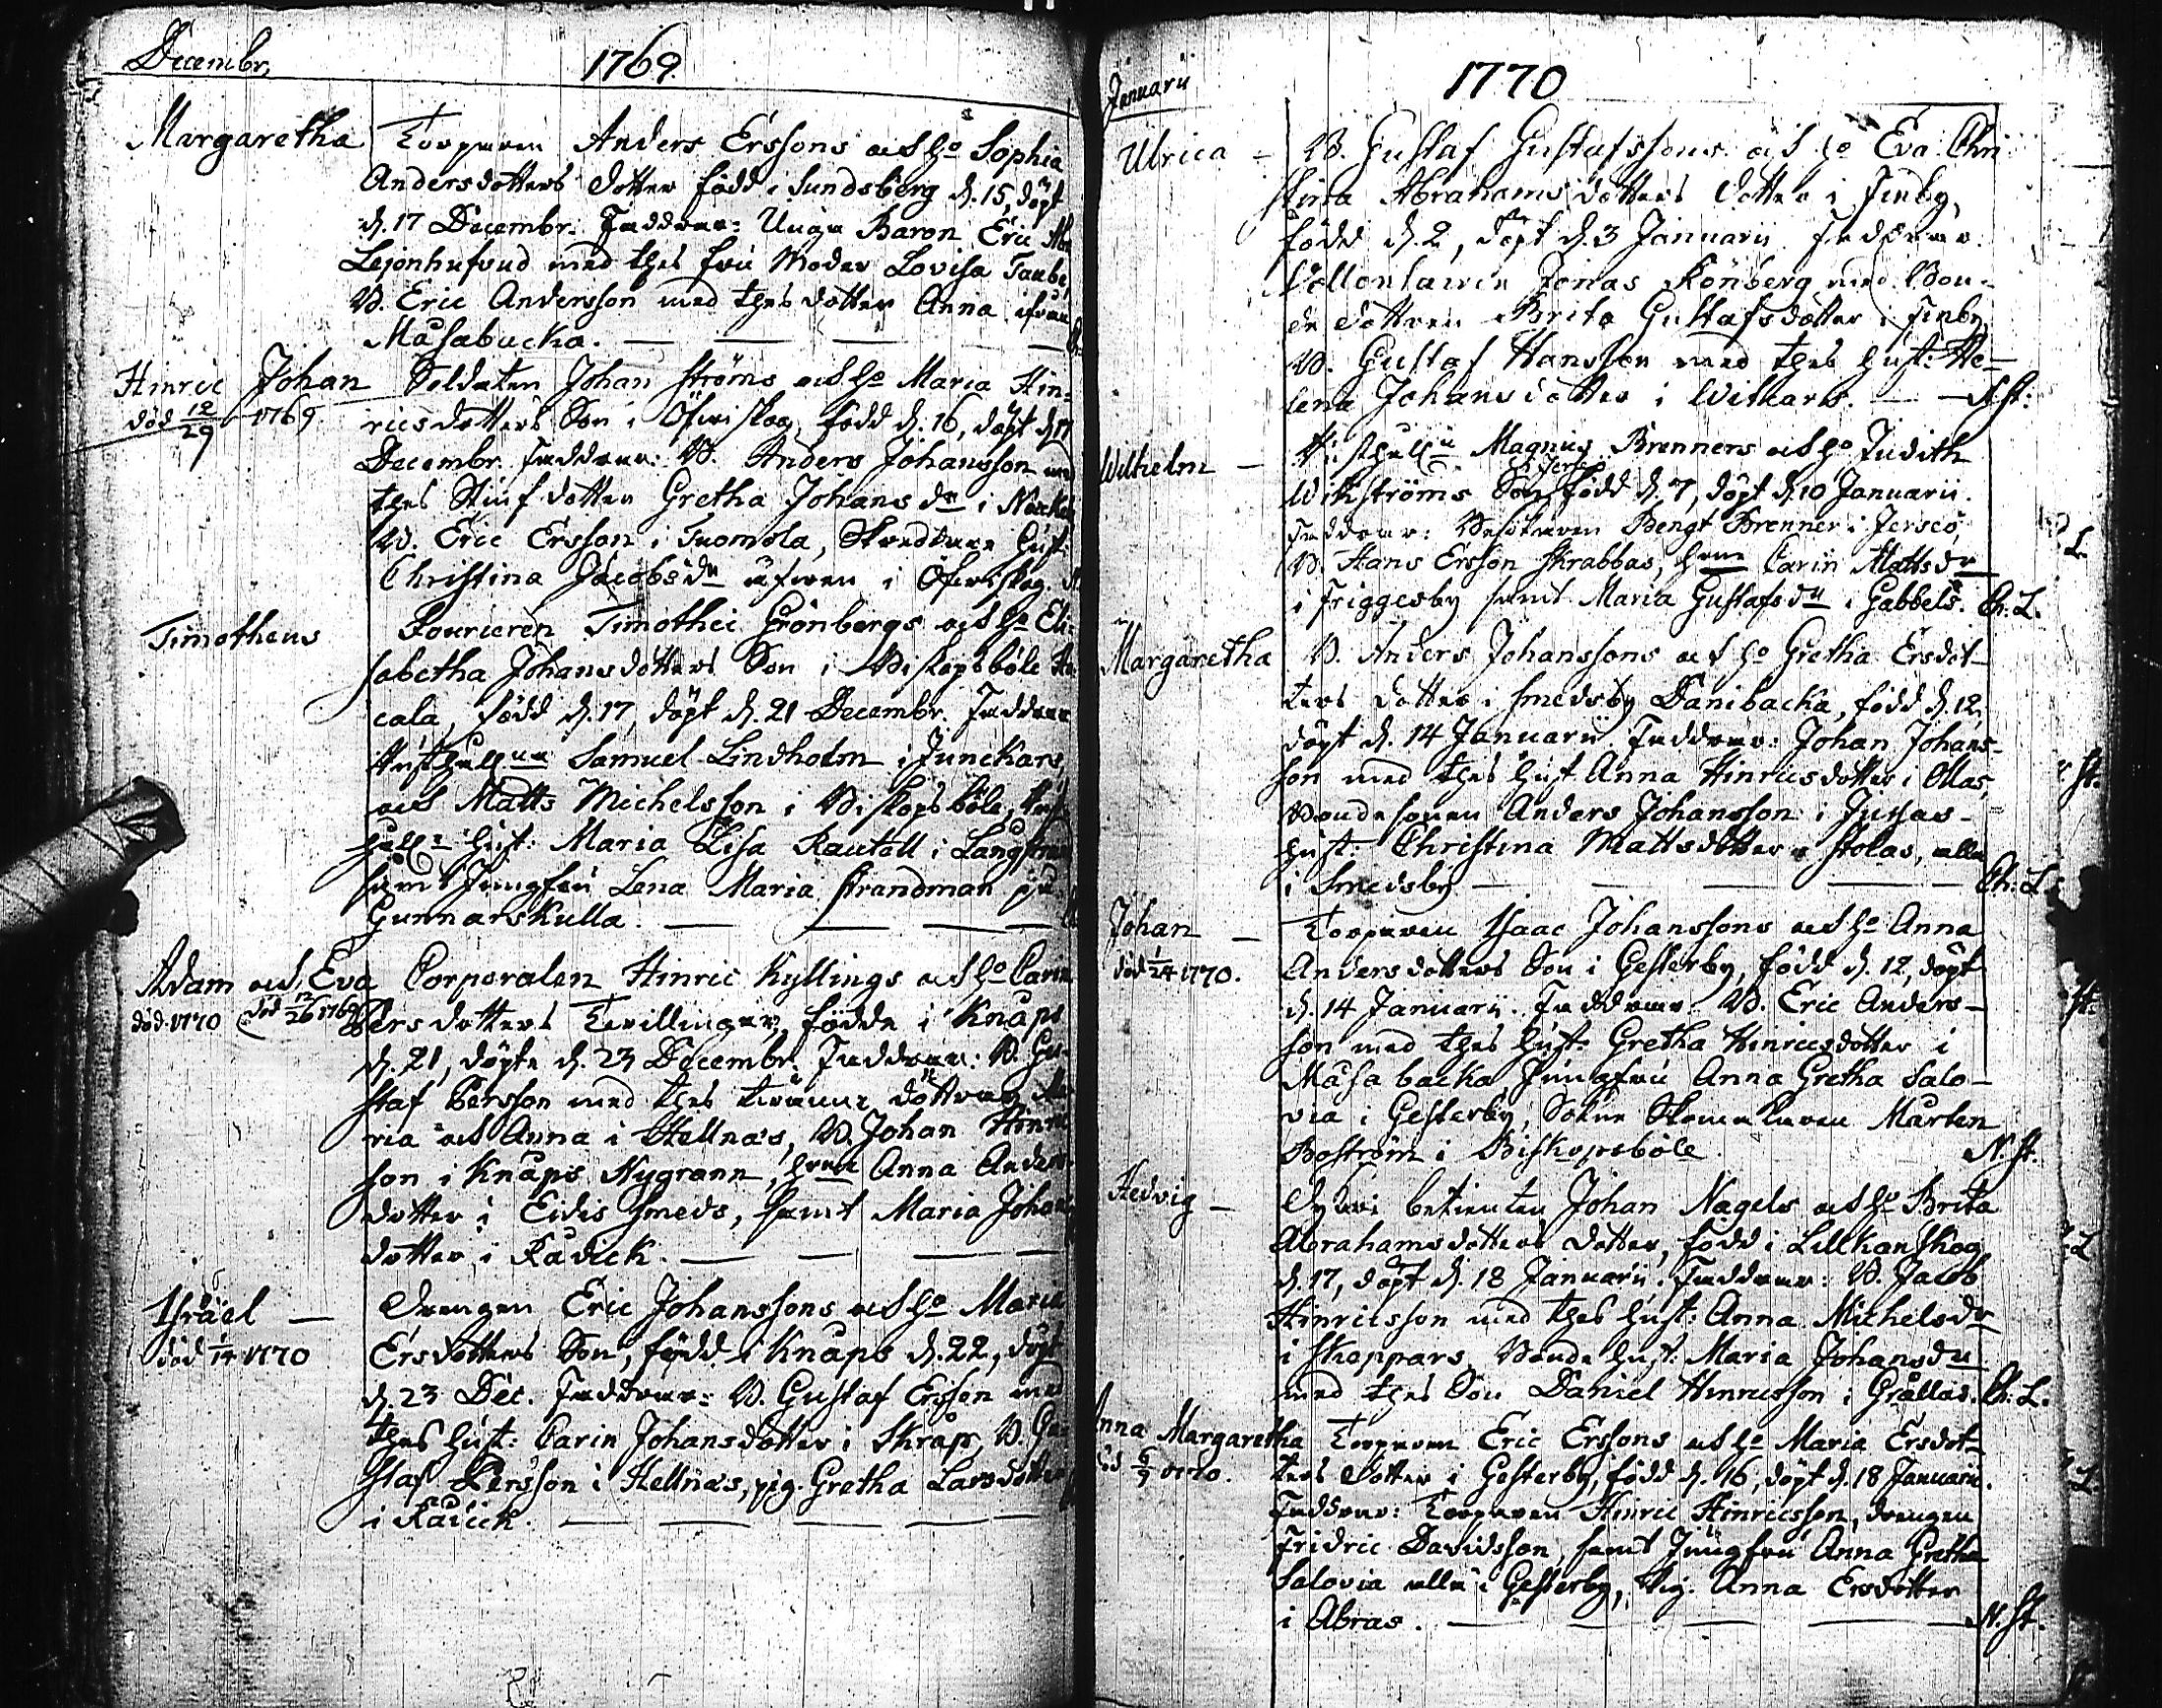 Decembr. 1769.
Margaretha Torparen Anders Erssons och Ho Sophia
Andersdotters dotter född i Sundsberg d. 15, döpt
d. 17 Decembr. Faddrar: Unga Baron Eric Abr
Lejonhufvud med thes fru Moder Lovisa Taube,
B. Eric Andersson med thes dotter Anna ifrån
Måsabacka.
Hinric Johan Soldaten Johan Ströms och Ho Maria Hin=
död 12/29 1769. ricsdotters Son i Öfvriskog, född d. 16, döpt d. 17
Decembr. Faddrar: B. Anders Johansson med
thes Stiufdotter Gretha Johansdr i
B. Eric Ersson i Tuomola, Skreddare Hust:
Christina Jacobsdr i Öfvriskog
Timotheus Fourieren Timothei Grönbergs och Ho Eli=
sabetha Johansdotters Son i Biskopsböle
cala, född d. 17, döpt d. 21 Decembr. Faddrar
Samuel Lindholm i Junckars,
och Matts Michelsson i Biskopsböle,
Hust: Maria Lisa Rautell i Långstrand
samt Jungfru Lena Maria Strandman på
Gunnarskulla.
Adam och Eva Corporalen Hinric Kyllings och Ho Carin
död 1770 (död 12/26 1769 Persdotters Tvillingar, födde i Knaps
d. 21, döpte d. 23 Decembr. Faddrar: B. Gu-
staf Persson med thes tvänne döttrar Ma
ria och Anna i Hellnäs, B. Johan Hinric
son i Knaps Nygrann, Anna Anders
dotter i Eidis Smeds, samt Maria Johans
dotter i Radick.
Israel Drengen Eric Johanssons och Ho Maria
död 1/14 1770 Ersdotters Son, född i Knaps d. 22, döpt
d. 23 Dec. Faddrar: B. Gustaf Ersson med
thes Hust: Carin Johansdotter i Skraps, B. Gu=
staf Persson i Hellnäs, pig. Gretha Larsdotter
i Radick.
Januarii 1770
Ulrica B. Gustaf Gustafssons och Ho Eva Chri
stina Abrahams dotters dotter i Finby,
född d. 2, döpt d. 3 Januarii. Faddrar.
Jonas Rönberg med Bon-
de dottren Brita Gustafsdotter i Finby,
B. Gustaf Hansson med thes Hust: He-
lena Johansdotter i Witkars. N. St:
Wilhelm Magnus Brenners och Ho Judith
Wikströms Son i Jerseö född d. 7, döpt d. 10 Januarii.
Faddrar: Bengt Brenner i Jerseö,
B. Hans Ersson Skrabbas, Carin Mattsdr
i Friggesby samt Maria Gustafsdr i Gabbels. Ch. L.
Margaretha B. Anders Johanssons och Ho Gretha Ersdot-
ters dotter i Smedsby Danibacka, född d. 12,
döpt d. 14 Januarii. Faddrar: Johan Johans-
son med thes Hust Anna Hinricsdotter i Ollas,
Bondesonen Anders Johansson i Jussas
Hust: Christina Mattsdotter Stolas, alla
i Smedsby Ch. L.
Johan Torparen Isaac Johanssons och Ho Anna
död 1/24 1770. Andersdotters Son i Gesterby, född d. 12, döpt
d. 14 Januarii. Faddrar B. Eric Anders-
son med thes Hust: Gretha Hinricsdotter i
Måsabacka, Jungfru Anna Gretha Salo-
via i Gesterby, Sokne Skomakaren Mårten
Boström i Biskopsböle. N. St.
Hedvig betienten Johan Nagels och Ho Brita
Abrahamsdotters dotter, född i Lillkanskog
d. 17, döpt d. 18 Januarii. Faddrar: B. Jacob
Hinricsson med thes Hust: Anna Michelsdr
i Skoppars, Bonde Hust: Maria Johansdr
med thes Son Daniel Hinricsson i Grållas. Ch. L.
Anna Margaretha Torparen Eric Erssons och Ho Maria Ersdot-
död 6/9 1770. ters dotter i Gesterby, född d. 16, döpt d. 18 Januarii.
Faddrar: Torparen Hinric Hinricsson, drengen
Fridric Davidsson, samt Jungfru Anna Gretha
Salovia alla i Gesterby, Pig. Anna Ersdotter
i Abras. N. St.